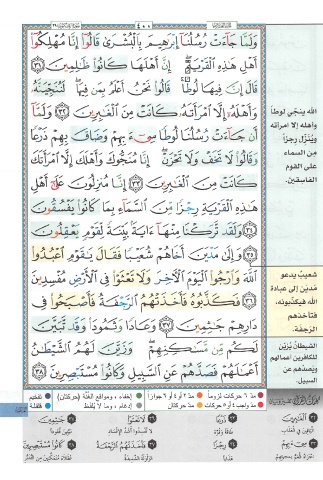 ٤٠٠
وَلَمَّا جَآءَتْ رُسُلُنَآ إِبْرَٰهِيمَ بِٱلْبُشْرَىٰ قَالُوٓا۟ إِنَّا مُهْلِكُوٓا۟
أَهْلِ هَٰذِهِ ٱلْقَرْيَةِ ۖ إِنَّ أَهْلَهَا كَانُوا۟ ظَٰلِمِينَ ﴿٣١﴾
قَالَ إِنَّ فِيهَا لُوطًا ۚ قَالُوا۟ نَحْنُ أَعْلَمُ بِمَن فِيهَا ۖ لَنُنَجِّيَنَّهُۥ
وَأَهْلَهُۥٓ إِلَّا ٱمْرَأَتَهُۥ كَانَتْ مِنَ ٱلْغَٰبِرِينَ ﴿٣٢﴾ وَلَمَّآ
أَن جَآءَتْ رُسُلُنَا لُوطًا سِىٓءَ بِهِمْ وَضَاقَ بِهِمْ ذَرْعًا
وَقَالُوا۟ لَا تَخَفْ وَلَا تَحْزَنْ ۖ إِنَّا مُنَجُّوكَ وَأَهْلَكَ إِلَّا ٱمْرَأَتَكَ
كَانَتْ مِنَ ٱلْغَٰبِرِينَ ﴿٣٣﴾ إِنَّا مُنزِلُونَ عَلَىٰٓ أَهْلِ
هَٰذِهِ ٱلْقَرْيَةِ رِجْزًا مِّنَ ٱلسَّمَآءِ بِمَا كَانُوا۟ يَفْسُقُونَ
﴿٣٤﴾ وَلَقَد تَّرَكْنَا مِنْهَآ ءَايَةًۢ بَيِّنَةً لِّقَوْمٍ يَعْقِلُونَ
﴿٣٥﴾ وَإِلَىٰ مَدْيَنَ أَخَاهُمْ شُعَيْبًا فَقَالَ يَٰقَوْمِ ٱعْبُدُوا۟
ٱللَّهَ وَٱرْجُوا۟ ٱلْيَوْمَ ٱلْءَاخِرَ وَلَا تَعْثَوْا۟ فِى ٱلْأَرْضِ مُفْسِدِينَ
﴿٣٦﴾ فَكَذَّبُوهُ فَأَخَذَتْهُمُ ٱلرَّجْفَةُ فَأَصْبَحُوا۟ فِى
دَارِهِمْ جَٰثِمِينَ ﴿٣٧﴾ وَعَادًا وَثَمُودَا۟ وَقَد تَّبَيَّنَ
لَكُم مِّن مَّسَٰكِنِهِمْ ۖ وَزَيَّنَ لَهُمُ ٱلشَّيْطَٰنُ
أَعْمَٰلَهُمْ فَصَدَّهُمْ عَنِ ٱلسَّبِيلِ وَكَانُوا۟ مُسْتَبْصِرِينَ ﴿٣٨﴾
الله ينجّي لوطاً
وأهله إلا امرأته
ويُنْزِلُ رِجزاً
من السماء
على القوم
الفاسقين.
شعيبٌ يدعو
مَدْيَن إلى عبادة
الله فيكذبونه،
فتأخذهم
الرّجفة.
الشيطانُ يُزَيّن
للكافرين أعمالهم
ويصدّهم عن
السبيل.